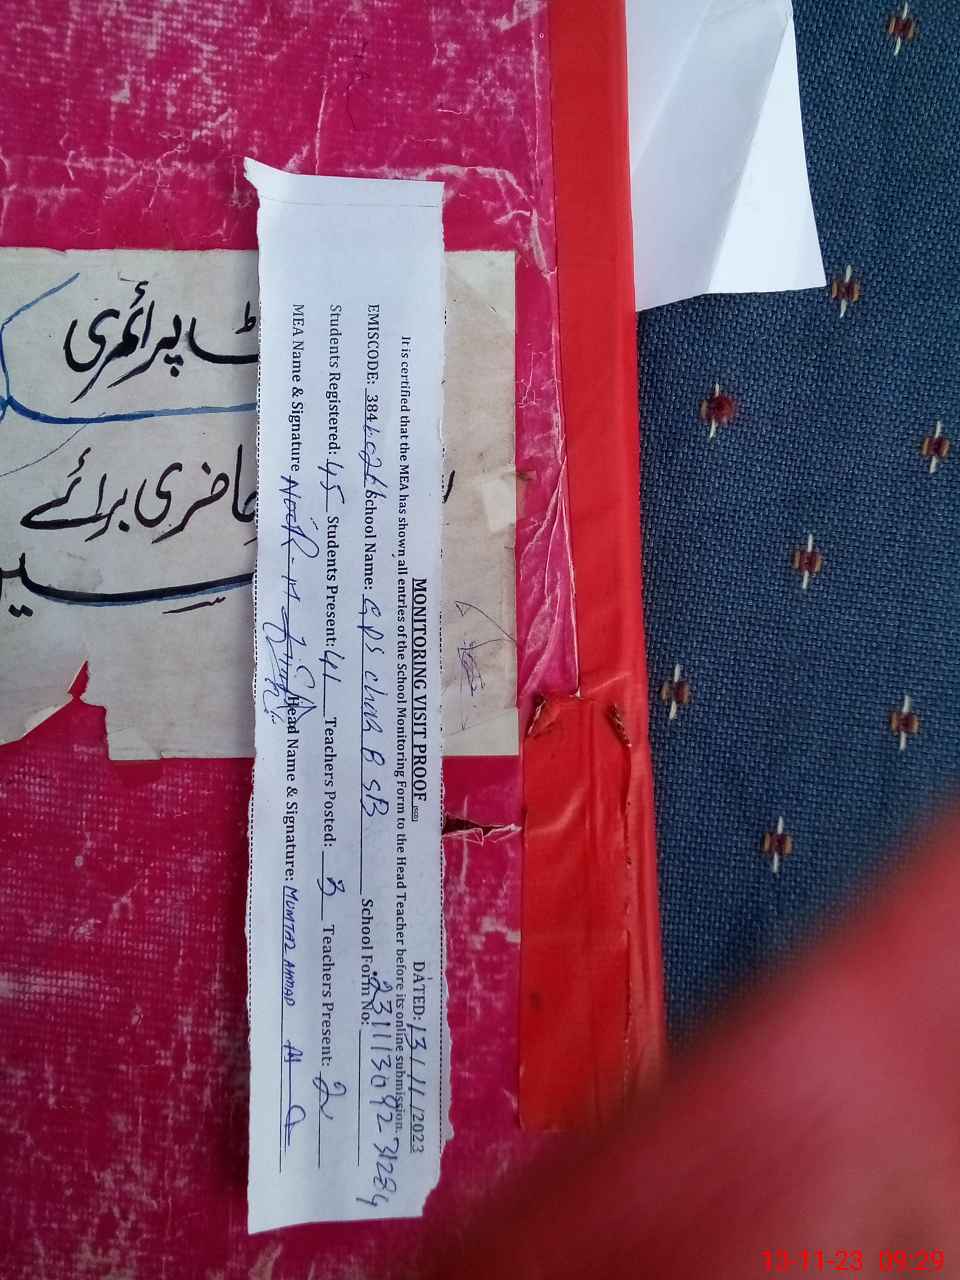 MONITORING VISIT PROOF (SED) DATED: 13/11/2023
It is certified that the MEA has shown all entries of the School Monitoring Form to the Head Teacher before its online submission.
EMISCODE: 384 School Name: GPS chak 8 SB School Form No:
Students Registered: 45 Students Present: 41 Teachers Posted: 3 Teachers Present: 2
MEA Name & Signature Head Name & Signature: MUMTAZ AHMAD
پرائمری
حاضری برائے
13-11-23 09:29